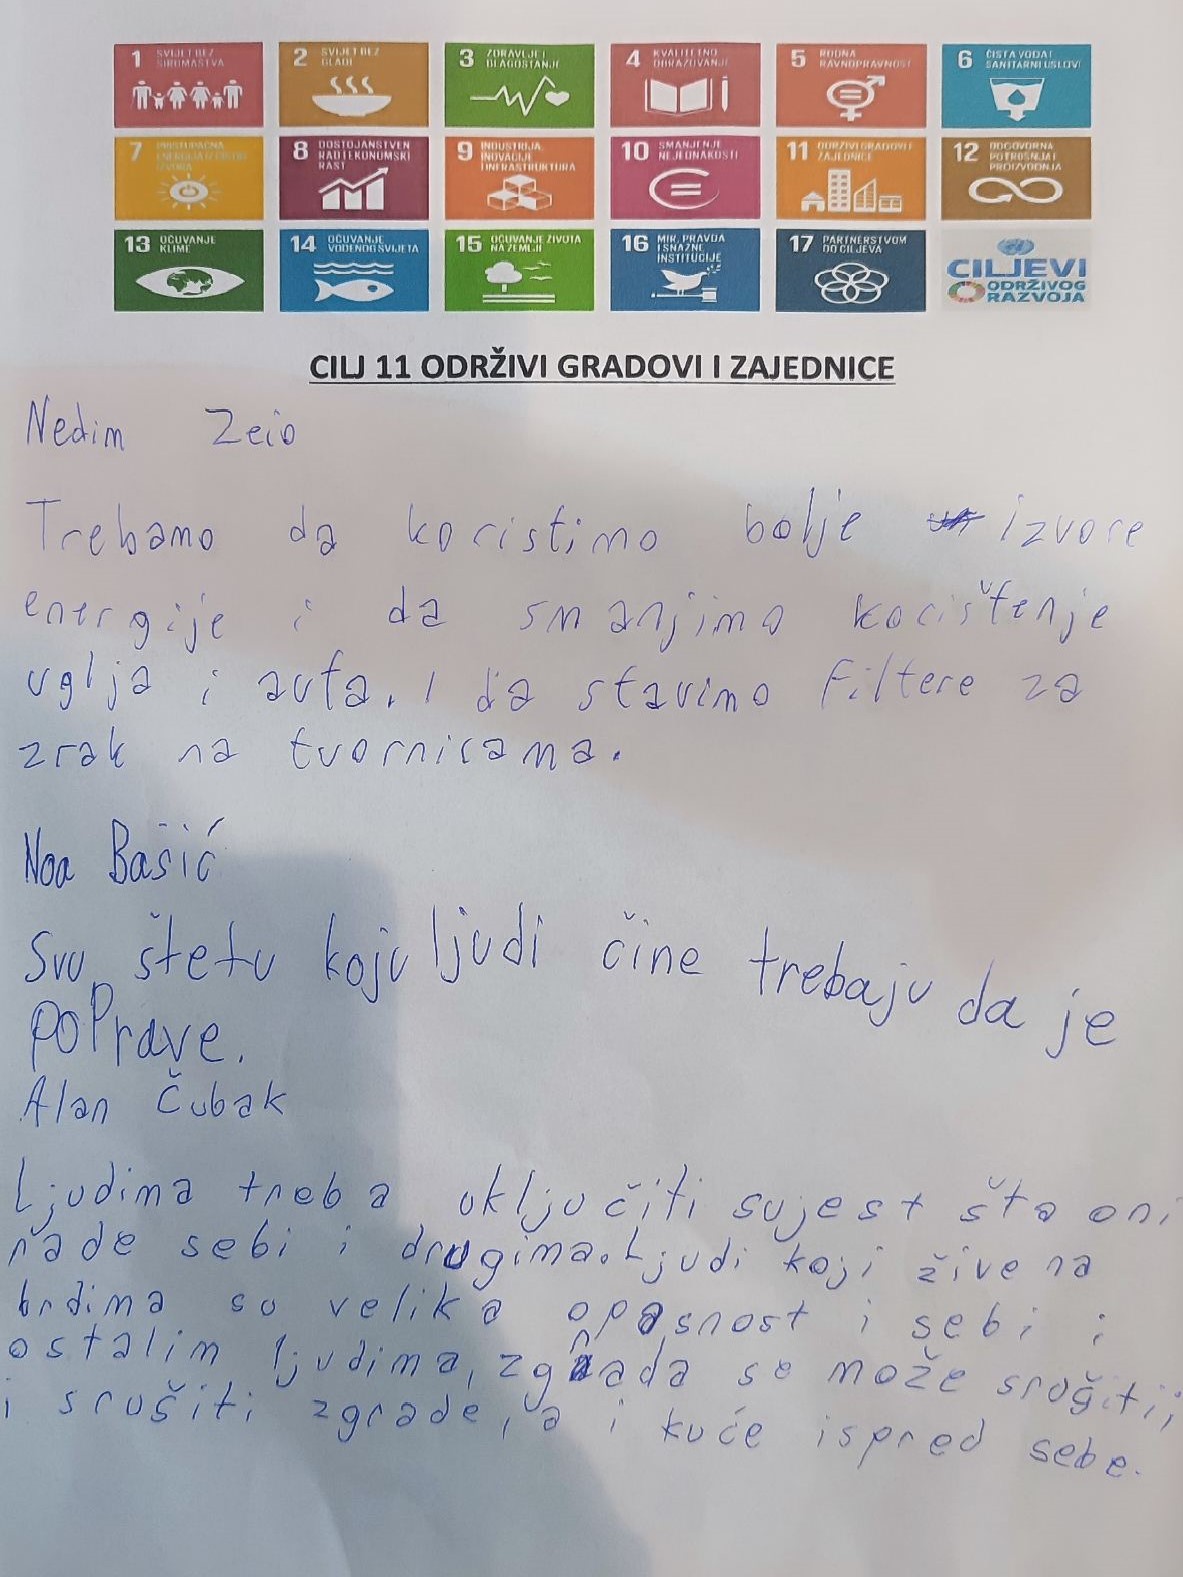 1 SVIJET BEZ SIROMAŠTVA
2 SVIJET BEZ GLADI
3 ZDRAVLJE I BLAGOSTANJE
4 KVALITETNO OBRAZOVANJE
5 RODNA RAVNOPRAVNOST
6 ČISTA VODA I SANITARNI USLOVI
7 PRISTUPAČNA ENERGIJA IZ ČISTIH IZVORA
8 DOSTOJANSTVEN RAD I EKONOMSKI RAST
9 INDUSTRIJA, INOVACIJE I INFRASTRUKTURA
10 SMANJENJE NEJEDNAKOSTI
11 ODRŽIVI GRADOVI I ZAJEDNICE
12 ODGOVORNA POTROŠNJA I PROIZVODNJA
13 OČUVANJE KLIME
14 OČUVANJE VODENOG SVIJETA
15 OČUVANJE ŽIVOTA NA ZEMLJI
16 MIR, PRAVDA I SNAŽNE INSTITUCIJE
17 PARTNERSTVOM DO CILJEVA
CILJEVI
ODRŽIVOG
RAZVOJA
CILJ 11 ODRŽIVI GRADOVI I ZAJEDNICE
Nedim Zeio
Trebamo da koristimo bolje izvore
energije i da smanjimo korištenje
uglja i auta. I da stavimo filtere za
zrak na tvornicama.
Noa Bašić
Svu štetu koju ljudi čine trebaju da je
poPrave.
Alan Čubak
Ljudima treba uključiti svjest šta oni
rade sebi i drugima. Ljudi koji žive na
brdima su velika opasnost i sebi i
ostalim ljudima, zgrada se može srušiti i
i srušiti zgrade, a i kuće ispred sebe.